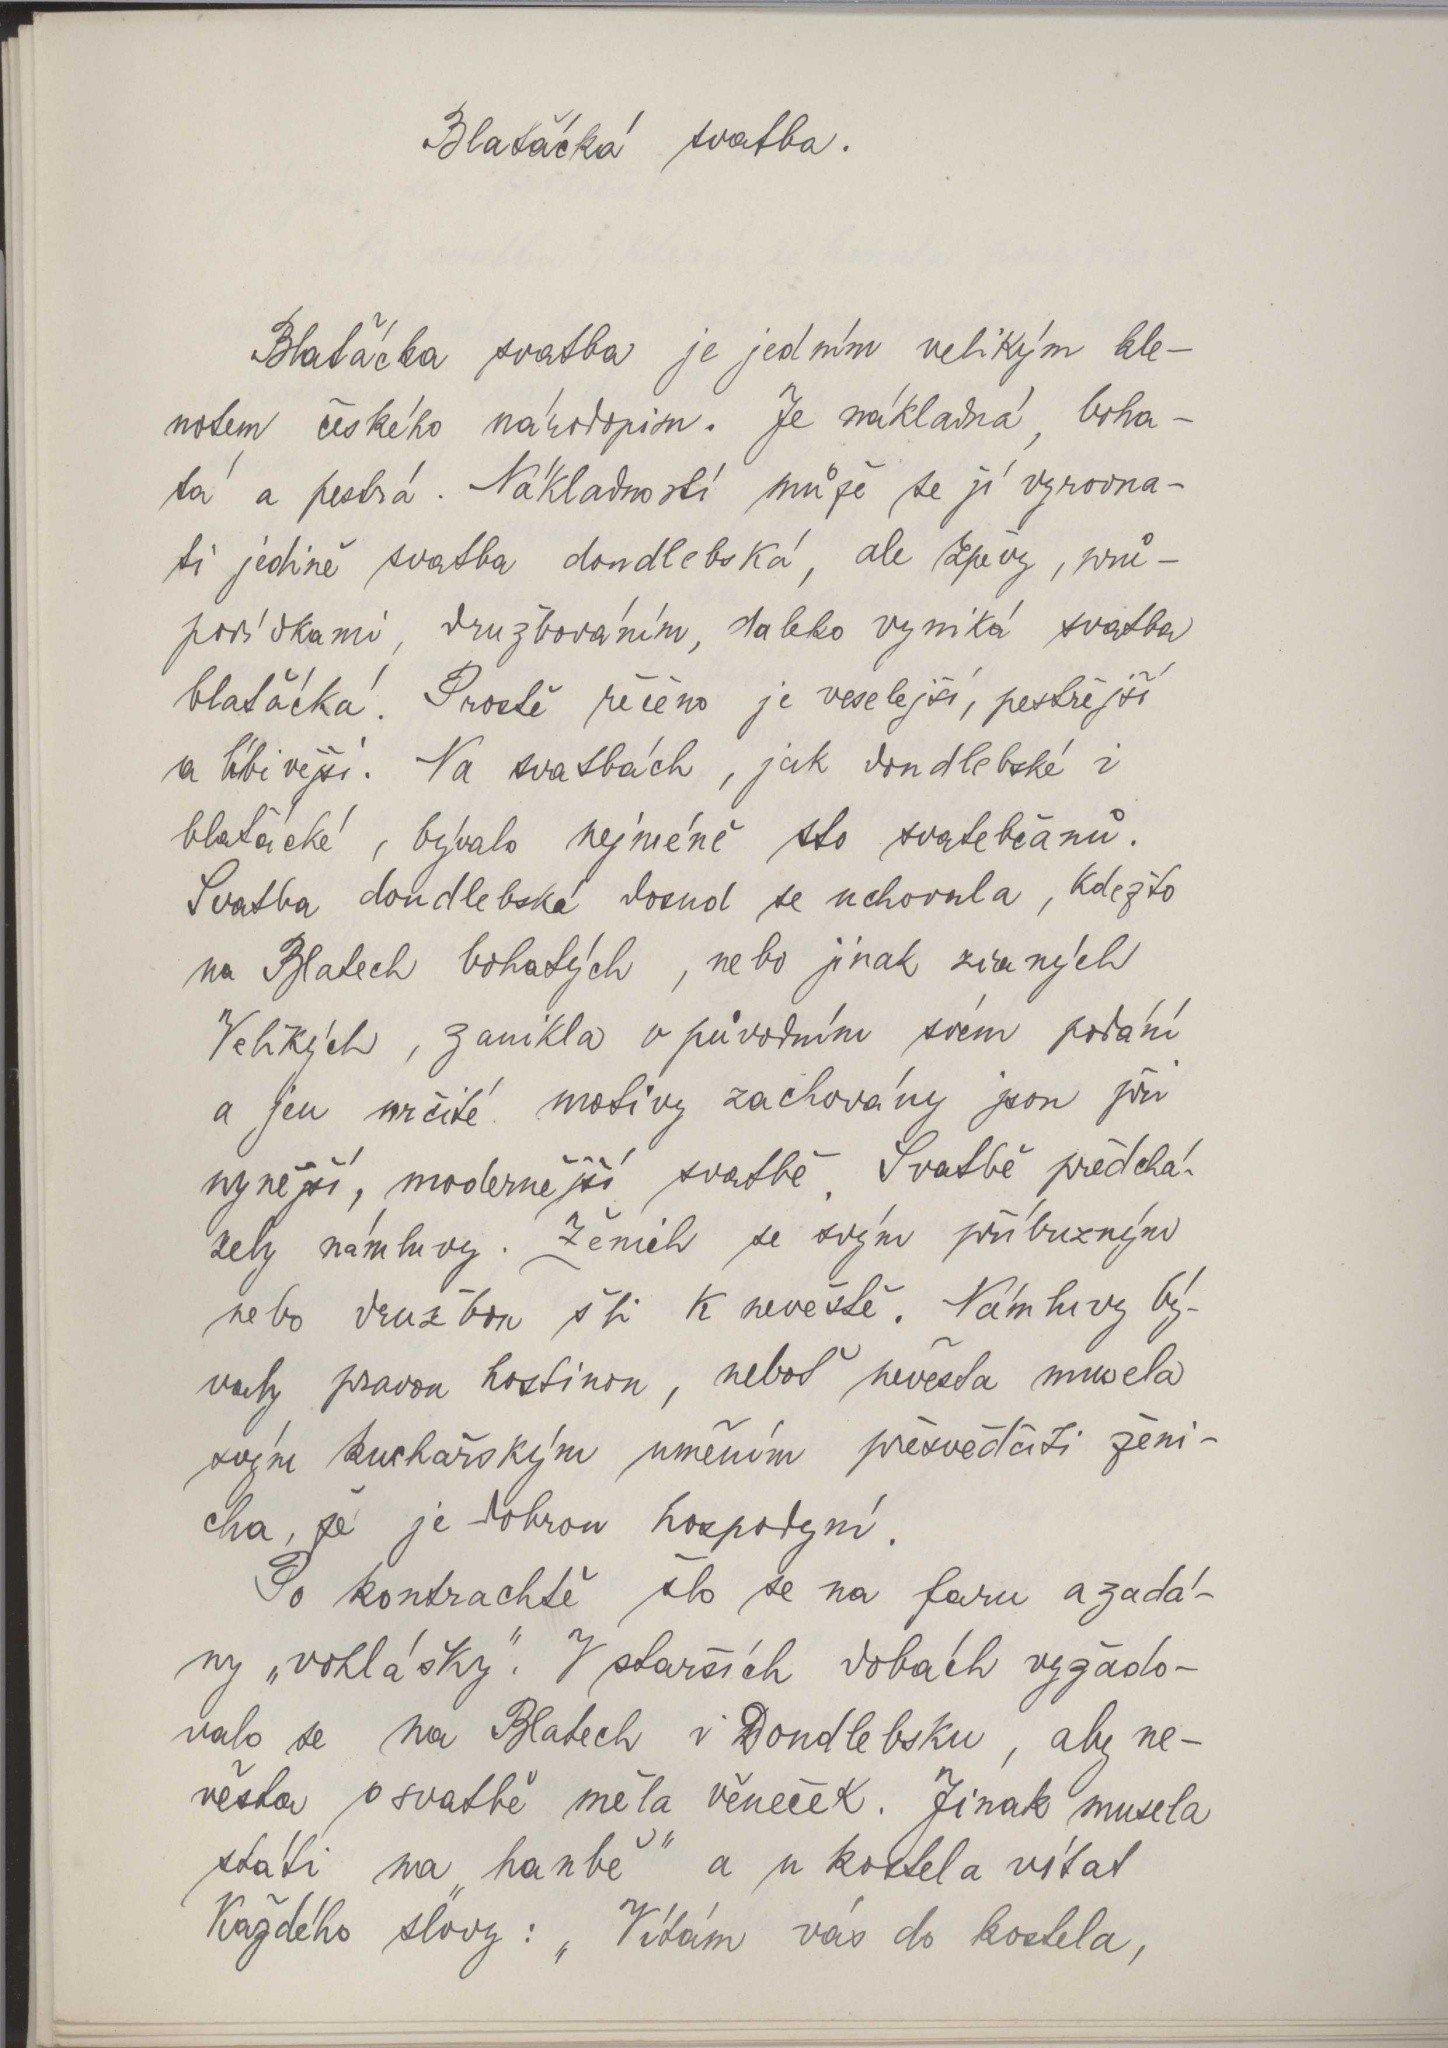 Blatácká svatba.
Blatácka svatba je jedním velikým kle-
notem českého národopisu. Je nákladná, boha-
tá a pestrá. Nákladností může se jí vyrovna-
ti jedině svatba doudlebská, ale zpěvy, prů-
povídkami, družbováním, daleko vyniká svatba
blatácká. Prostě řečeno je veselejší, pestřejší
a líbivější. Na svatbách, jak doudlebské i
blatácké, bývalo nejméně sto svatebčanů.
Svatba doudlebská dosud se uchovala, kdežto
na Blatech bohatých, nebo jinak zvaných
Velikých, zanikla v původním svém podání
a jen určité motivy zachovány jsou při
nynější, modernější svatbě. Svatbě předchá-
zely námluvy. Ženich se svým příbuzným
nebo družbou šli k nevěstě. Námluvy bý-
valy pravou hostinou, neboť nevěsta musela
svým kuchařským uměním přesvědčiti ženi-
cha, že je dobrou hospodyní.
Po kontrachtě šlo se na faru a zadá-
ny „vohlášky". V starších dobách vyžado-
valo se na Blatech i Doudlebsku, aby ne-
věsta o svatbě měla věneček. Jinak musela
státi na „hanbě" a u kostela vítat
každého slovy: „Vítám vás do kostela,